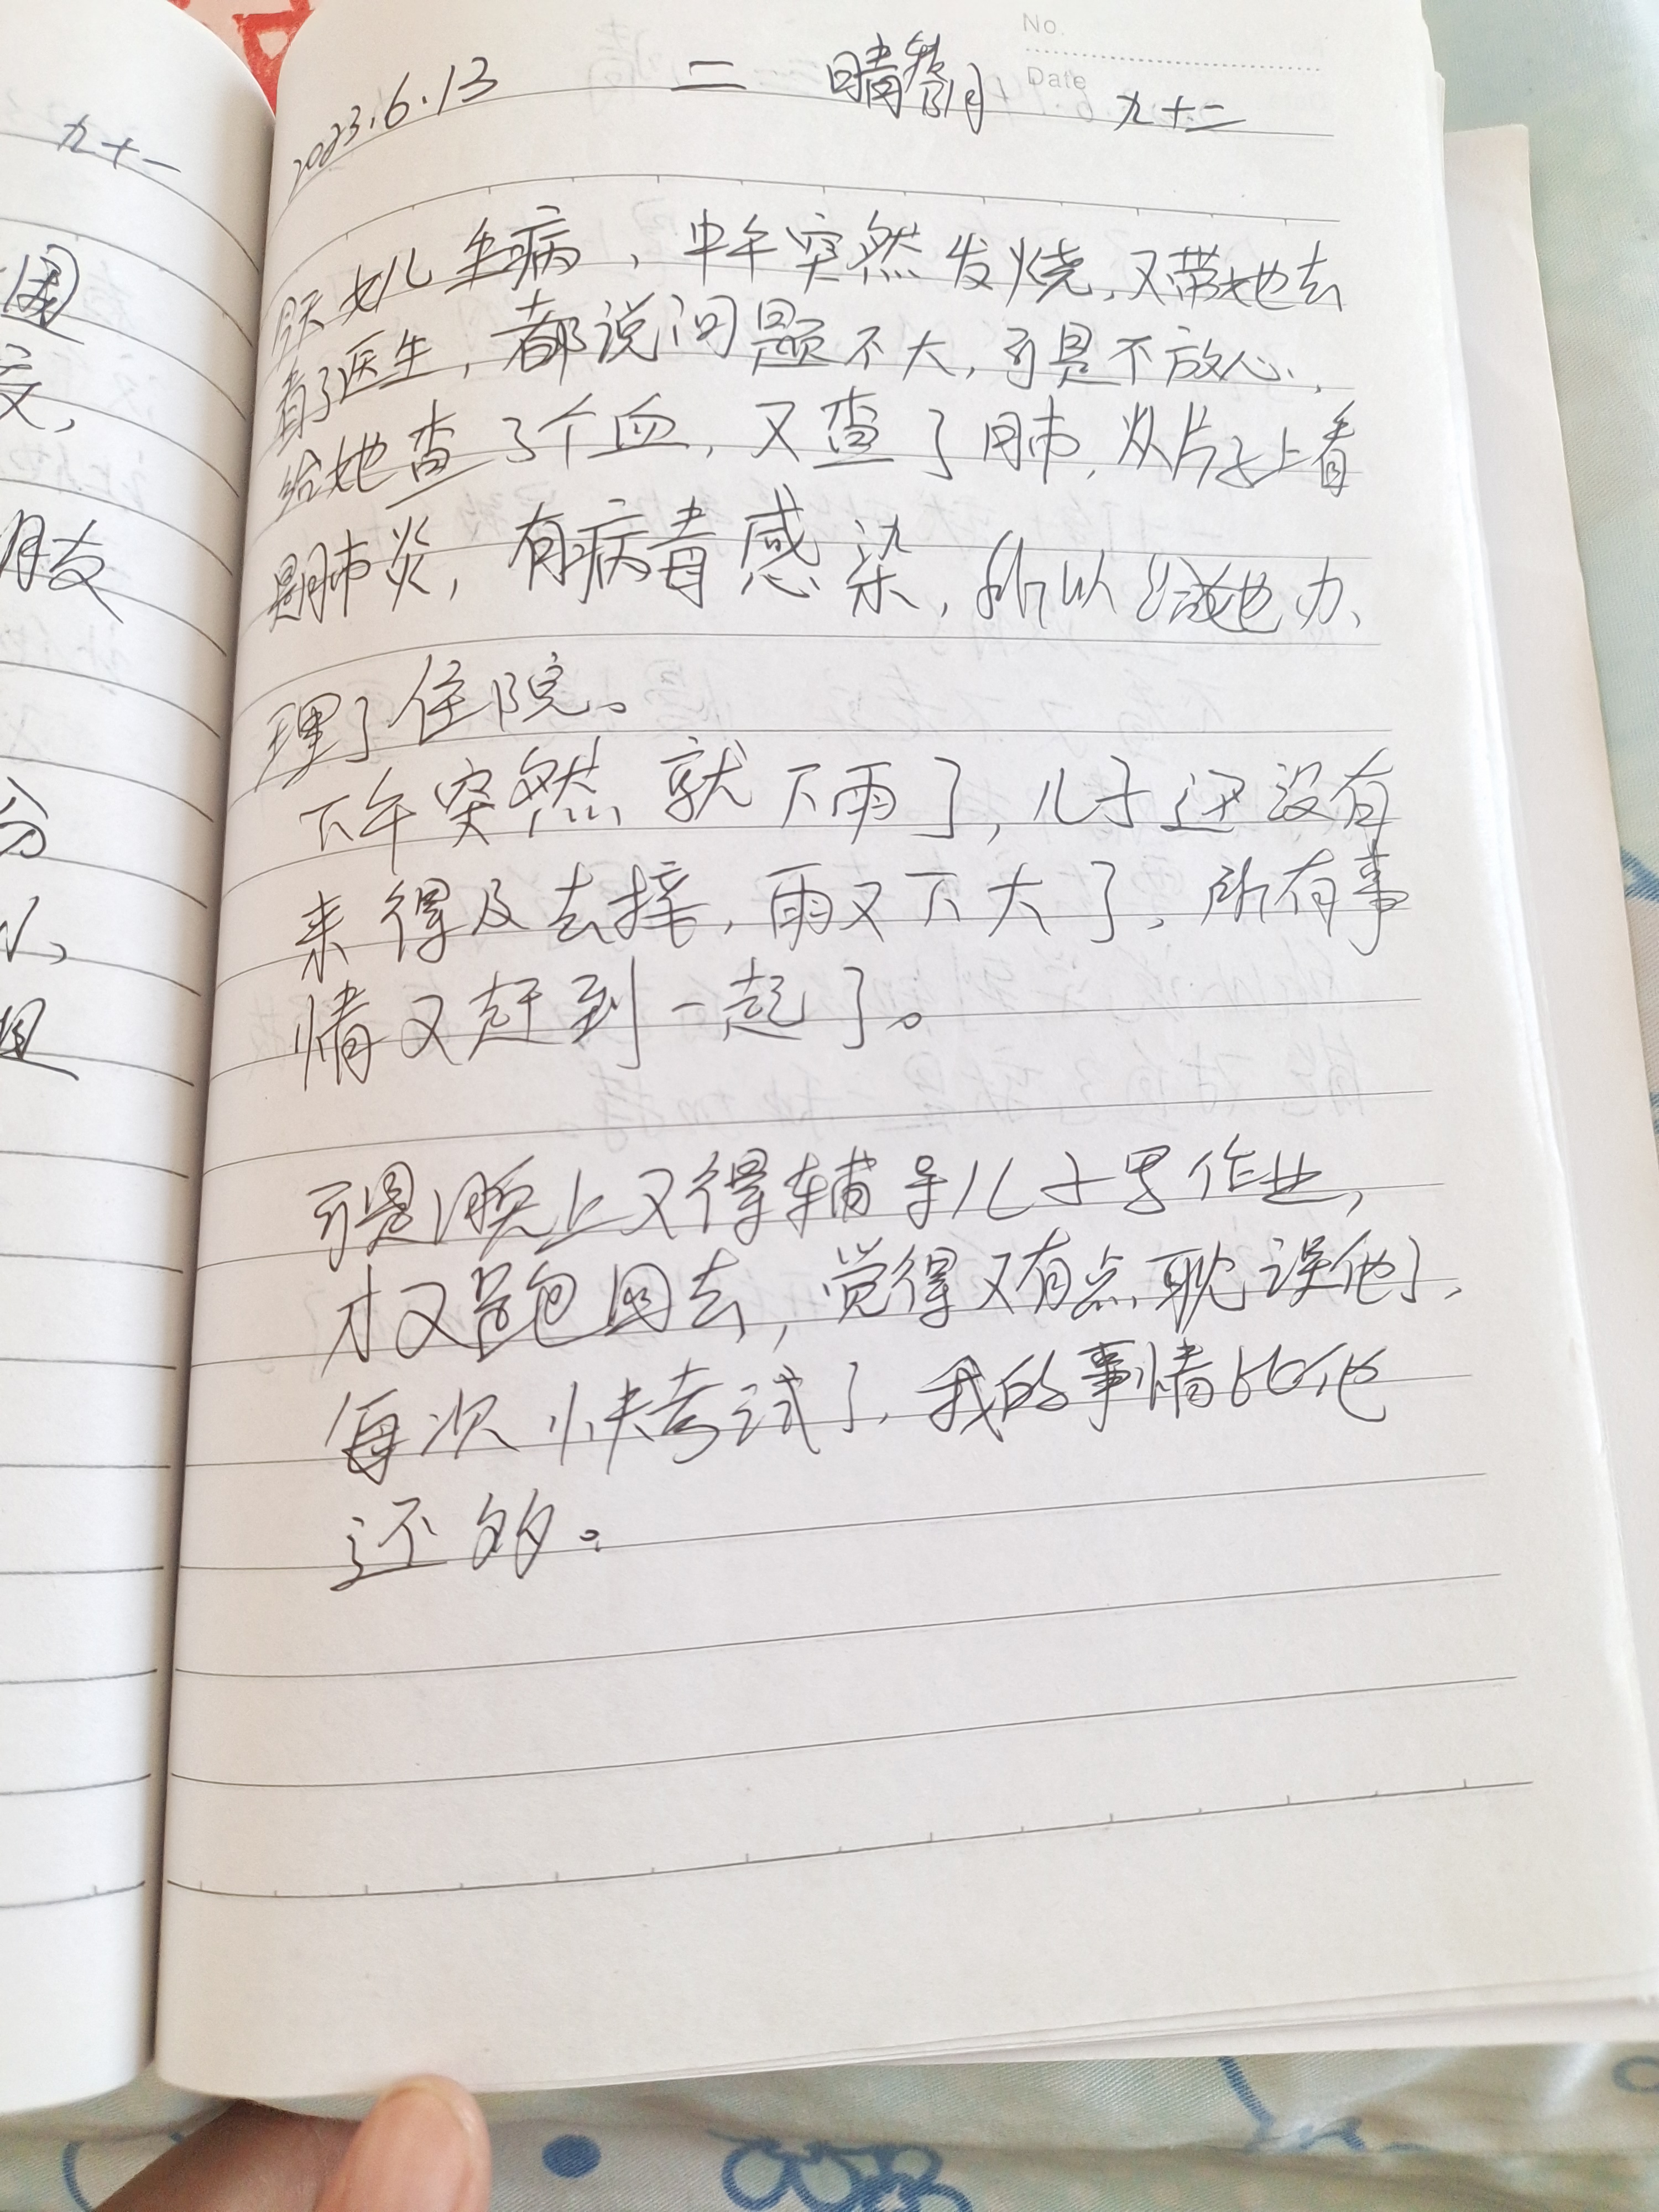 No.
Date
2023.6.13 二 晴 九十二
今天女儿生病，中午突然发烧，又带她去
看了医生，都说问题不大，可是不放心，
给她查了个血，又查了肺，从片子上看
是肺炎，有病毒感染，所以给她办
理了住院。
下午突然就下雨了，儿子还没有
来得及去接，雨又下大了，所有事
情又赶到一起了。
可是晚上又得辅导儿子写作业，
才又跑回去，觉得又有点耽误他了，
每次快考试了，我的事情比他
还多。
九十一
围
朋友
分